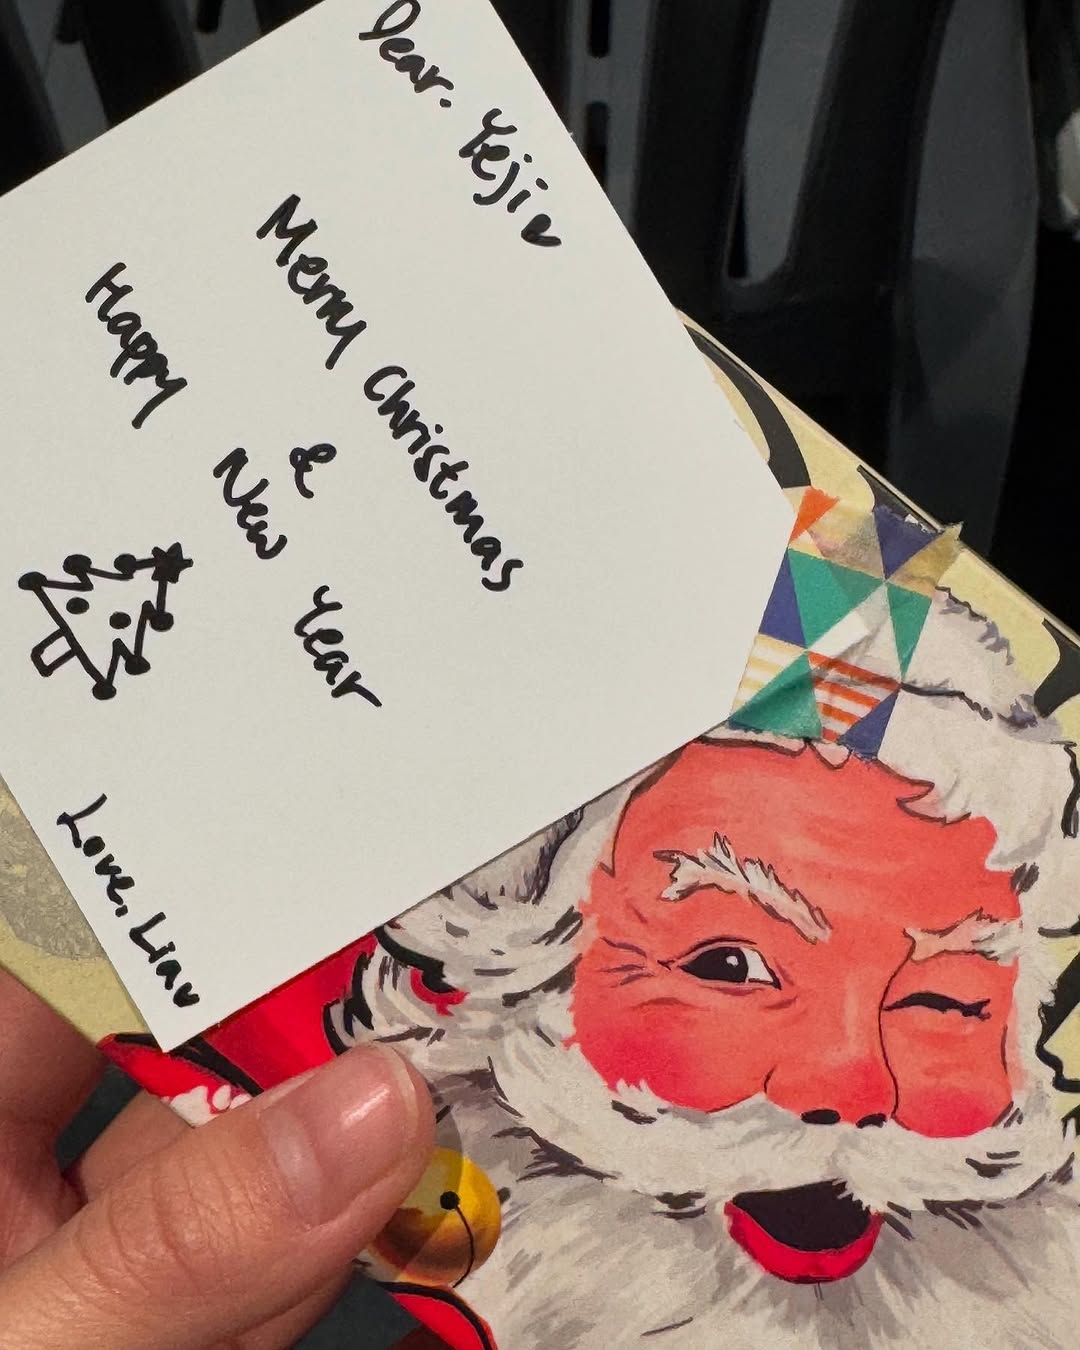 Dear. Yeji♥
Merry Christmas
&
Happy New Year
Love, Lia♥